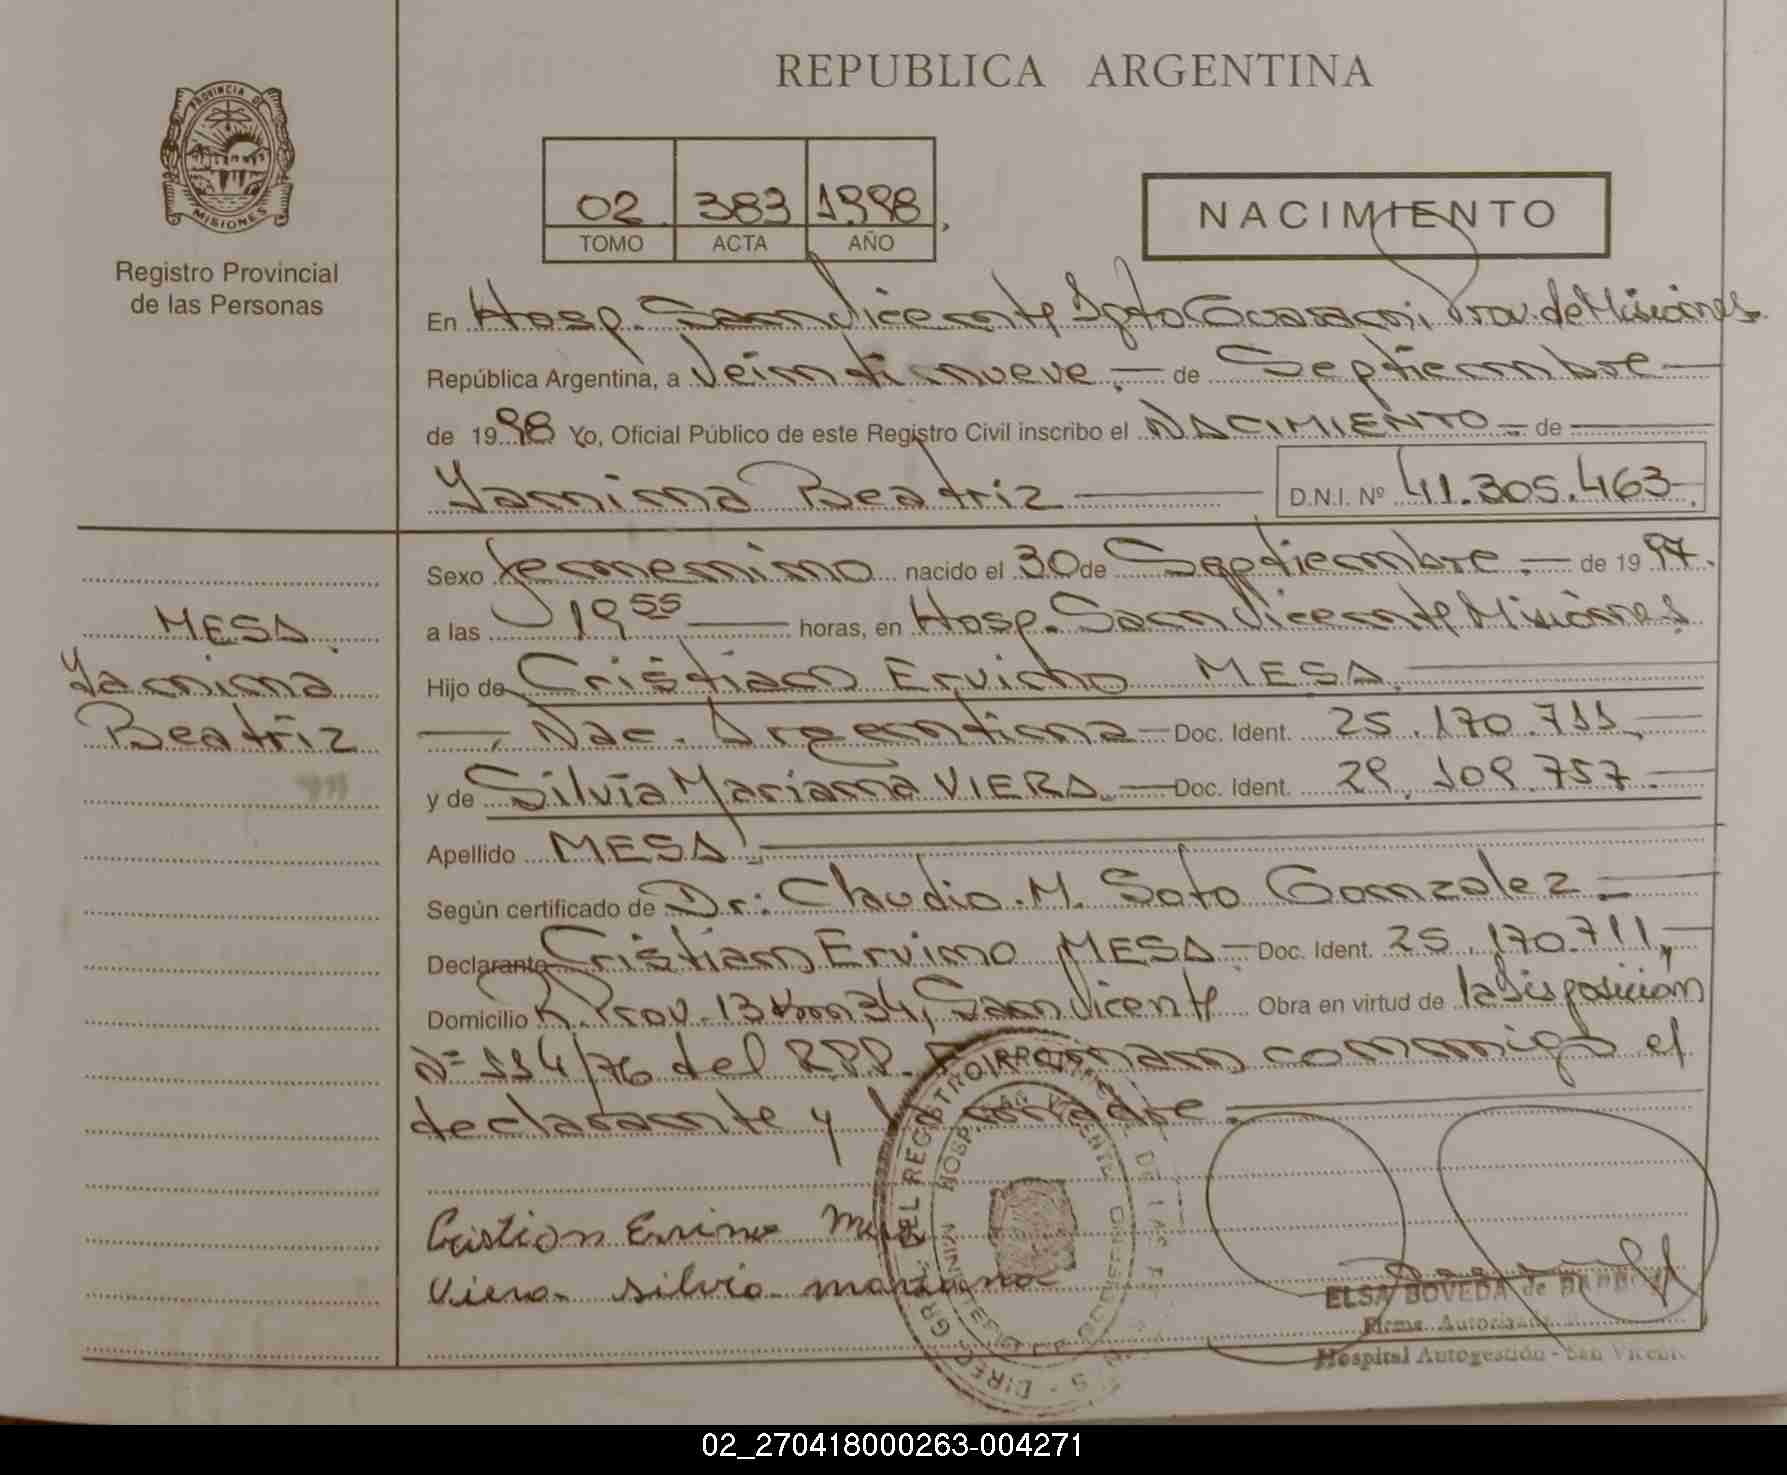 REPUBLICA ARGENTINA
PROVINCIA DE
MISIONES
Registro Provincial
de las Personas
02 383 1998
TOMO ACTA AÑO
NACIMIENTO
En Hosp. San Vicente Dpto Guarani, Prov. de Misiones
República Argentina, a Veinti nueve.- de Septiembre
de 1998 Yo, Oficial Público de este Registro Civil inscribo el NACIMIENTO - de
Yanina Beatriz D.N.I. Nº 41.305.463
Sexo femenino nacido el 30 de Septiembre.- de 1997.
a las 19 55 horas, en Hosp. San Vicente Misiones
MESA
Yanina
Beatriz
Hijo de Cristian Ervino MESA
Nac. Argentina - Doc. Ident. 25.170.711
y de Silvia Mariana VIERA - Doc. Ident. 29.109.757
Apellido MESA
Según certificado de Dr: Claudio M. Soto Gonzalez
Declarante Cristian Ervino MESA - Doc. Ident. 25.170.711
Domicilio R. Prov. 13 Km 34, San Vicente Obra en virtud de la Disposición
Nº 114/76 del RPP. Firman conmigo el
declarante y la madre.
Cristian Ervino Mesa
Viera silvia mariana
HOSP. SAN VICENTE
ELSA BOVEDA de
Firma Autorizada
Hospital Autogestión - San Vicente
02_270418000263-004271